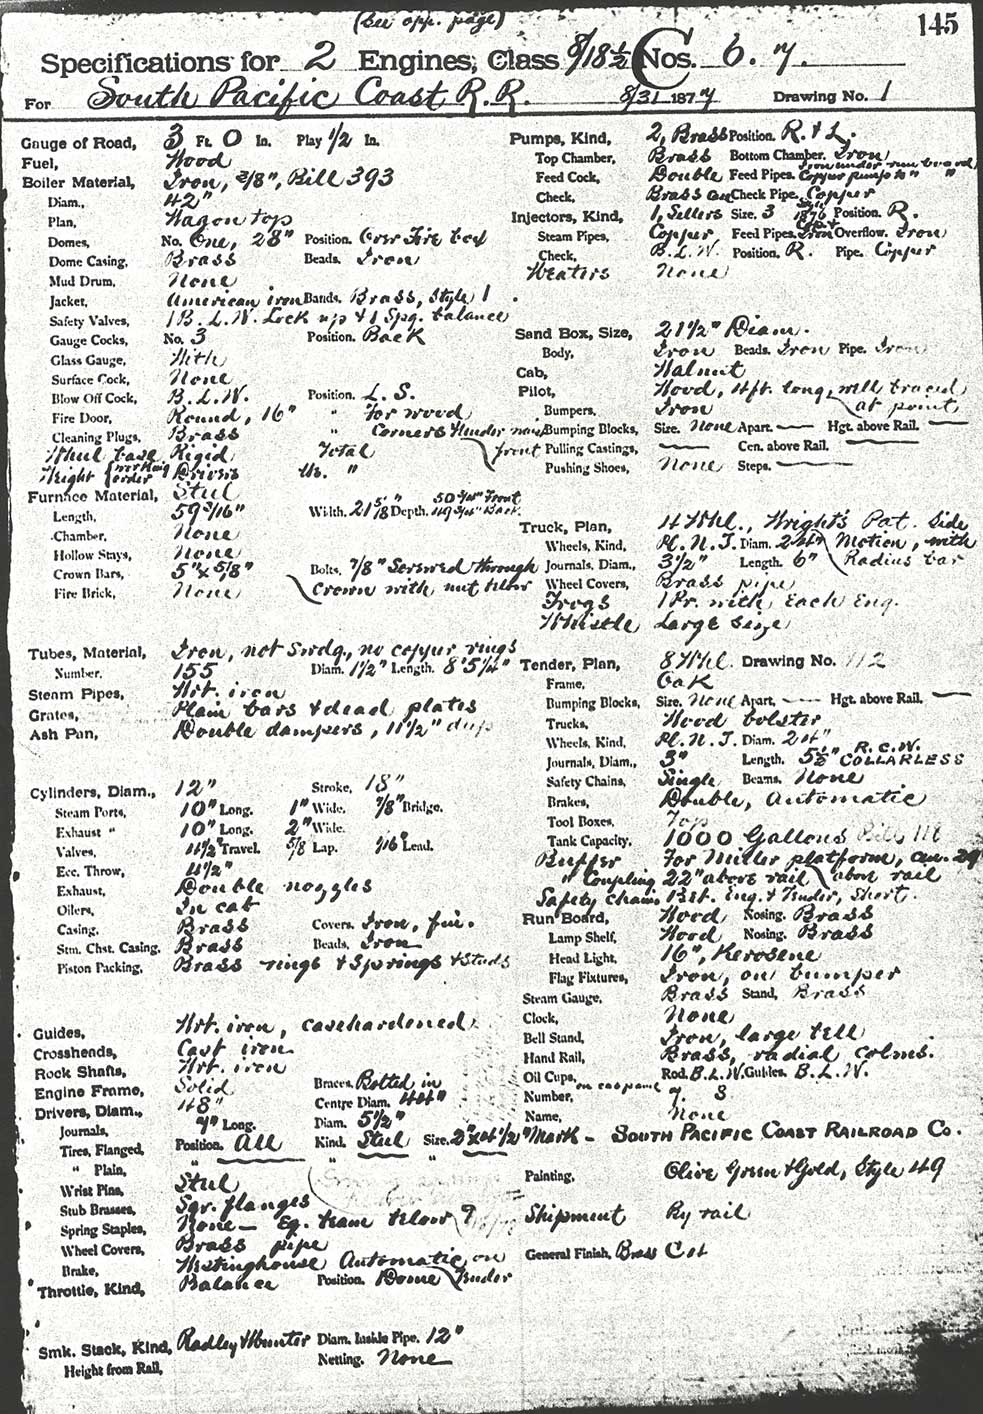 (See opp. page)
145
Specifications for 2 Engines, Class 8/18 1/2 C Nos. 6. 7.
For South Pacific Coast R. R. 8/31 1877 Drawing No. 1
Gauge of Road, 3 Ft. 0 In. Play 1/2 In.
Fuel, Wood
Boiler Material, Iron, 3/8", Bill 393
Diam., 42"
Plan, Wagon top
Domes, No. One, 28" Position. Over Fire box
Dome Casing, Brass Beads. Iron
Mud Drum, None
Jacket, American iron Bands. Brass, Style 1
Safety Valves, 1 B. L. W. Lock up & 1 Spg. balance
Gauge Cocks, No. 3 Position. Back
Glass Gauge, With
Surface Cock, None
Blow Off Cock, B. L. W. Position. L. S.
Fire Door, Round, 16" " for wood
Cleaning Plugs, Brass " Corners & under
Wheel base Rigid Total front
Weight working order Drivers "
Furnace Material, Steel
Length, 59 3/16" Width. 21 5/8" Depth. 50 3/4" Front 49 3/4" Back.
Chamber, None
Hollow Stays, None
Crown Bars, 5" x 5/8" Bolts. 7/8" Screwed through
Fire Brick, None Crown with nut below
Tubes, Material, Iron, not Swdg., no copper rings
Number, 155 Diam. 1 1/2" Length. 8' 5 1/4"
Steam Pipes, Wrt. iron
Grates, Plain bars & dead plates
Ash Pan, Double dampers, 11 1/2" deep
Cylinders, Diam., 12" Stroke, 18"
Steam Ports, 10" Long. 1" Wide. 7/8" Bridge.
Exhaust " 10" Long. 2" Wide.
Valves, 4 1/2" Travel. 5/8 Lap. 1/16" Lead.
Ecc. Throw, 4 1/2"
Exhaust, Double nozzles
Oilers, In cab
Casing, Brass Covers. Iron, fin.
Stm. Chst. Casing, Brass Beads, Iron
Piston Packing, Brass rings & Springs & Studs
Guides, Wrt. iron, casehardened
Crossheads, Cast iron
Rock Shafts, Wrt. iron
Engine Frame, Solid Braces. Bolted in
Drivers, Diam., 48" Centre Diam. 44"
Journals, 7" Long. Diam. 5 1/2"
Tires, Flanged, Position. All Kind. Steel Size. 2" x 4 1/2"
" Plain, " " "
Wrist Pins, Steel
Stub Brasses, Sqr. flanges
Spring Staples, None - Eq. beam below
Wheel Covers, Brass pipe
Brake, Westinghouse Automatic, on Tender
Throttle, Kind, Balance Position. Dome
Smk. Stack, Kind, Radley & Hunter Diam. Inside Pipe. 12"
Height from Rail, Netting. None
Pumps, Kind, 2, Brass Position. R. & L.
Top Chamber, Brass Bottom Chamber. Iron
Feed Cock, Double Feed Pipes. Iron under run board, Copper pump to " "
Check, Brass Check Pipe. Copper
Injectors, Kind, 1, Sellers Size. 3 Style 1876 Position. R.
Steam Pipes, Copper Feed Pipes. Iron Overflow. Iron
Check, B. L. W. Position. R. Pipe. Copper
Heaters None
Sand Box, Size, 21 1/2" Diam.
Body, Iron Beads. Iron Pipe. Iron
Cab, Walnut
Pilot, Wood, 4 ft. long, well braced at point
Bumpers, Iron
Bumping Blocks, Size. None Apart. — Hgt. above Rail. —
Pulling Castings, — Cen. above Rail. —
Pushing Shoes, None Steps. —
Truck, Plan, 4 Whl., Wright's Pat. Side Motion, with Radius bar
Wheels, Kind, Pl. N. J. Diam. 24"
Journals, Diam., 3 1/2" Length. 6"
Wheel Covers, Brass pipe
Frogs 1 Pr. with Each Eng.
Whistle Large size
Tender, Plan, 8 Whl. Drawing No. 112
Frame, Oak
Bumping Blocks, Size. None Apart. — Hgt. above Rail. —
Trucks, Wood bolster
Wheels, Kind, Pl. N. J. Diam. 24"
Journals, Diam., 3" Length. 5 1/2" R. C. W. COLLARLESS
Safety Chains, Single Beams. None
Brakes, Double, Automatic
Tool Boxes, Top
Tank Capacity, 1000 Gallons
Buffer For Miller platform, cen. 29 above rail
" Coupling 22" above rail
Safety Chains Bet. Eng. & Tender, Short.
Run Board, Wood Nosing. Brass
Lamp Shelf, Wood Nosing. Brass
Head Light, 16", Kerosene
Flag Fixtures, Iron, on bumper
Steam Gauge, Brass Stand, Brass
Clock, None
Bell Stand, Iron, large bell
Hand Rail, Brass, radial colms.
Oil Cups, Rod. B. L. W. Guides. B. L. W.
Number, on cab panel 7. 8
Name, None
Mark - SOUTH PACIFIC COAST RAILROAD CO.
Painting, Olive Green & Gold, Style 49
Shipment By rail
General Finish, Brass Cut